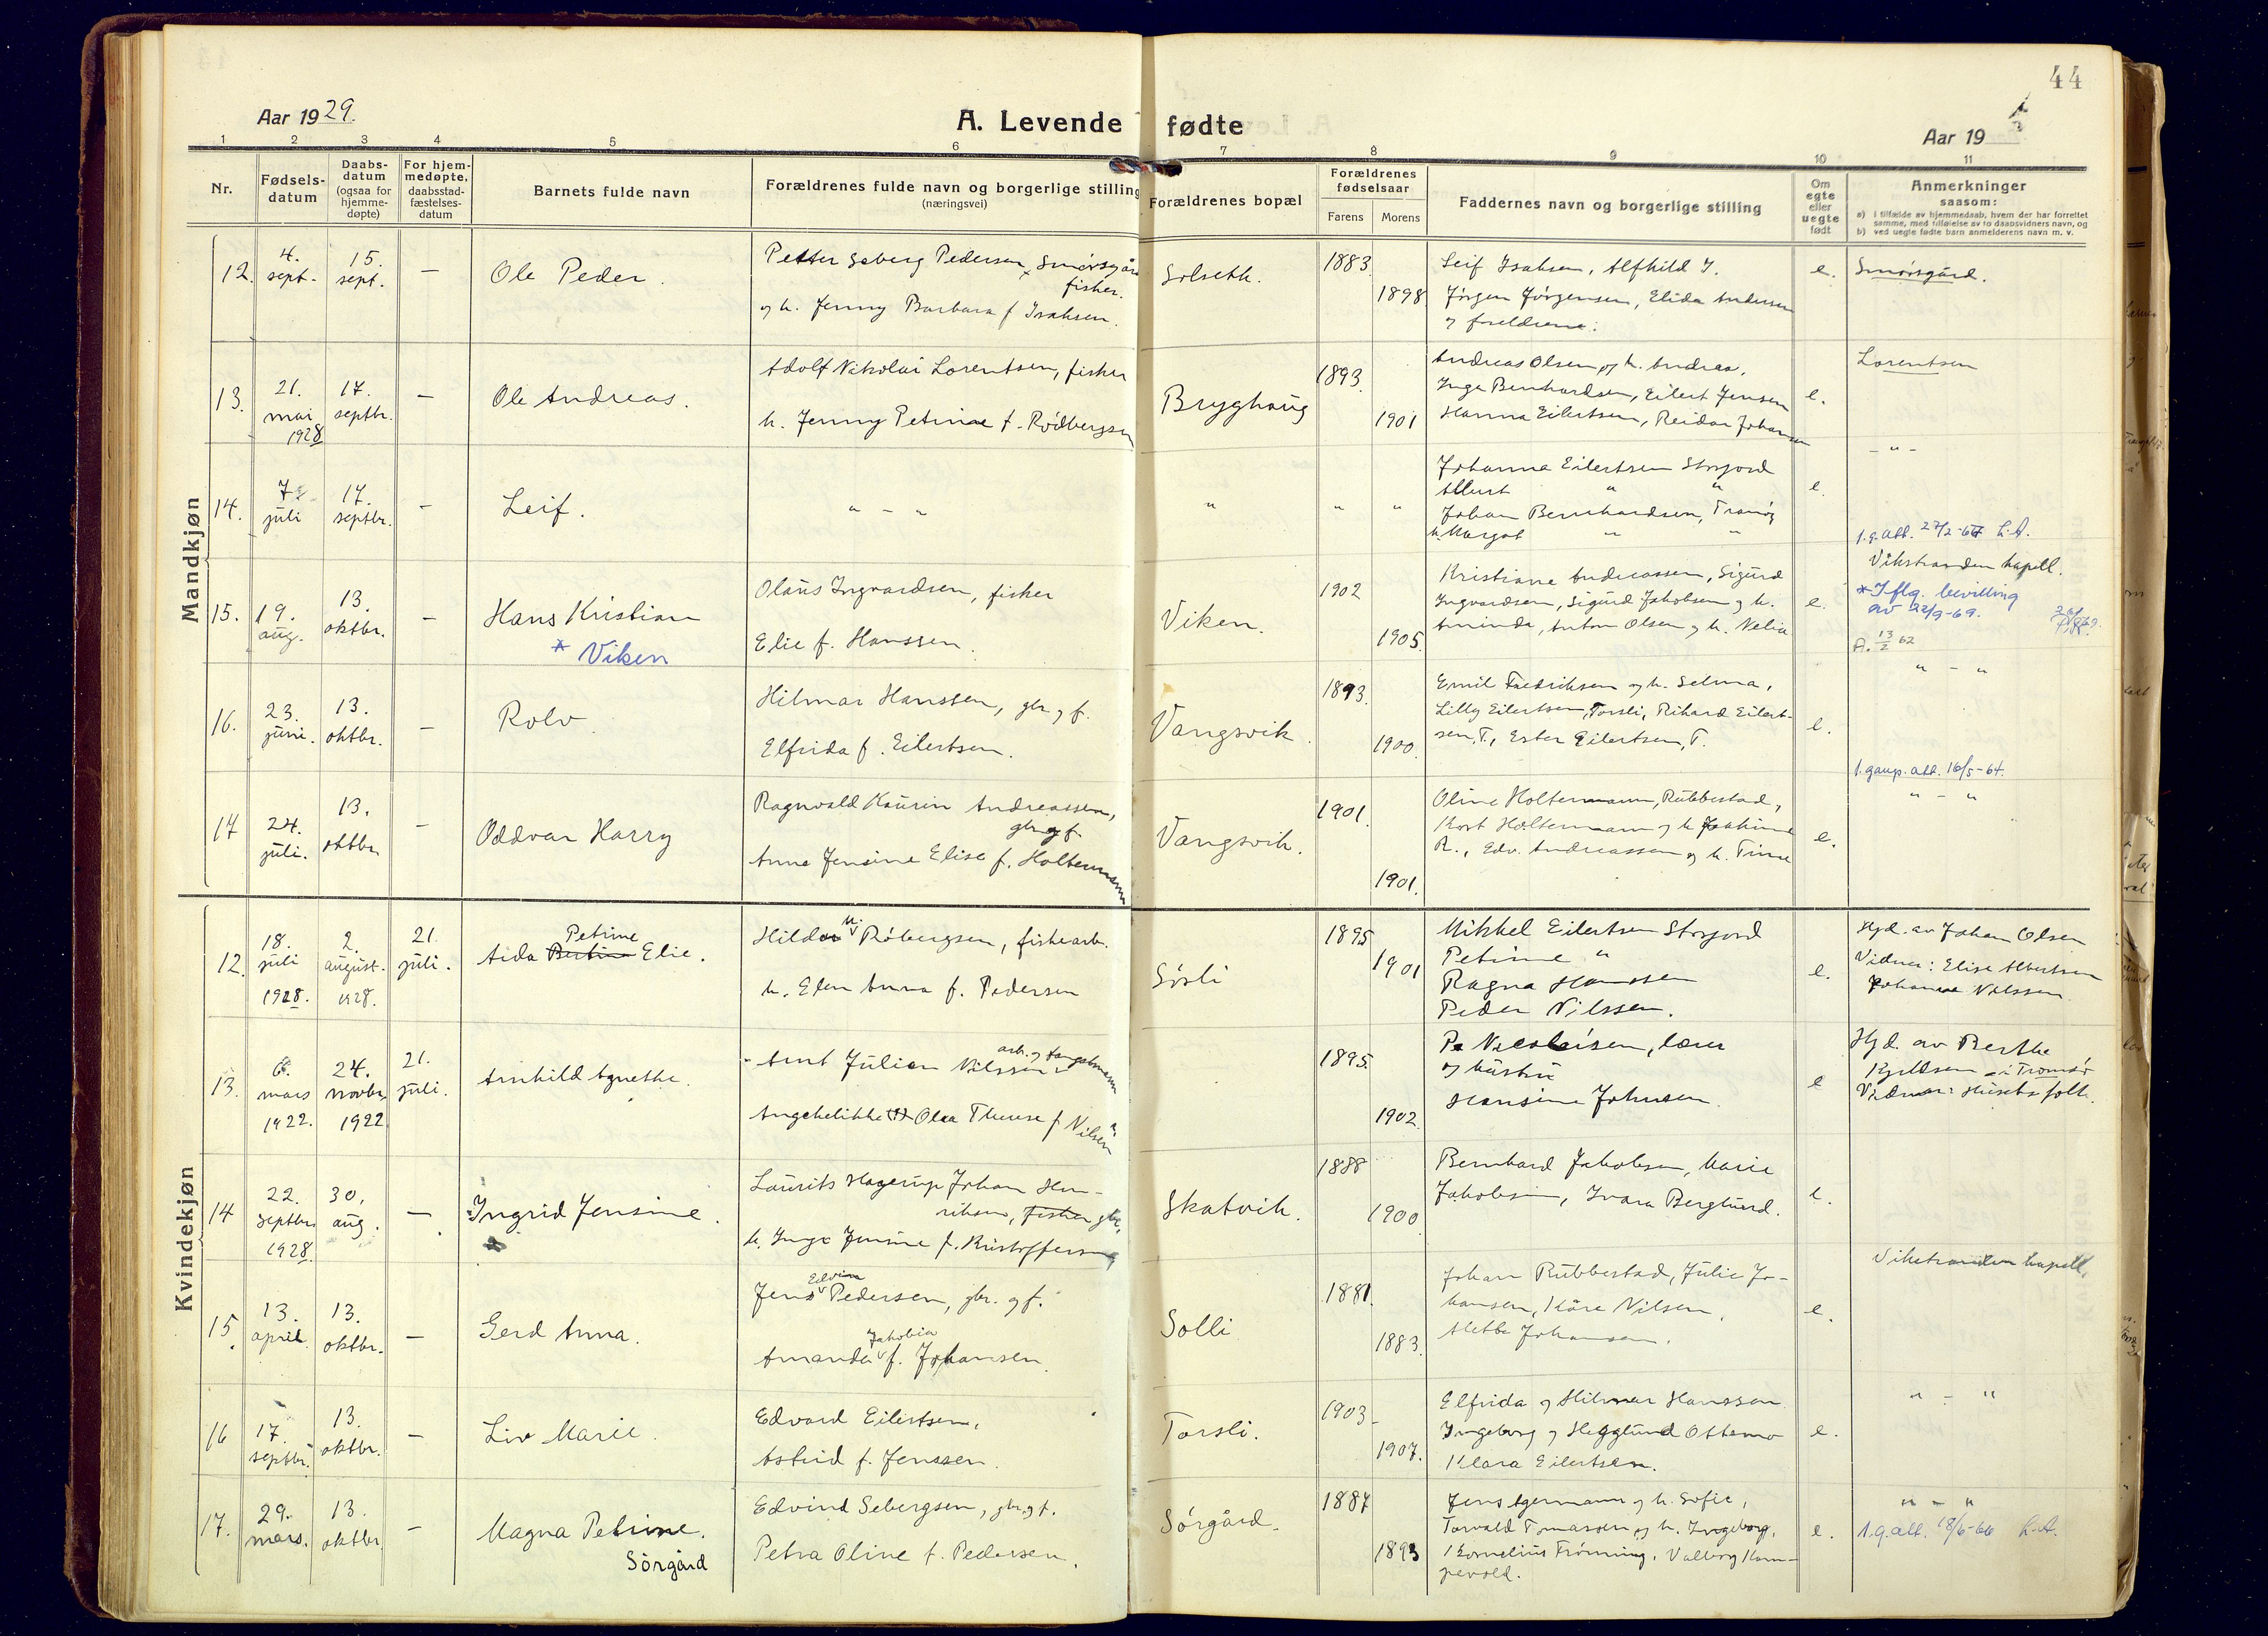 44
Aar 1929.
A. Levende fødte
Aar 19
1 2 3 4 5 6 7 8 9 10 11
Nr.
Fødsels-
datum
Daabs-
datum
(ogsaa for
hjemme-
døpte)
For hjem-
medøpte,
daabsstad-
fæstelses-
datum
Barnets fulde navn
Forældrenes fulde navn og borgerlige stilling
(næringsvei)
Forældrenes bopæl
Forældrenes
fødselsaar
Farens Morens
Faddernes navn og borgerlige stilling
Om
egte
eller
uegte
født
Anmerkninger
saasom:
a) i tilfælde av hjemmedaab, hvem der har forrettet
samme, med tilføielse av to daapsvidners navn, og
b) ved uegte fødte barn anmelderens navn m. v.
Mandkjøn
12.
4.
sept.
15.
sept.
—
Ole Peder.
Petter Seberg Pedersen, Smörsgård
fisker.
og h. Jenny Barbara f Isaksen.
Solseth.
1883
1898
Leif Isaksen, Alfhild I.
Jörgen Jörgensen, Elida Andersen
og foreldrene.
e.
Smörsgård.
13.
21.
mai
1928
17.
septbr.
—
Ole Andreas.
Adolf Nikolai Lorentsen, fisker
h. Jenny Petrine f. Rödbergsen
Bryghaug
1893
1901
Andreas Olsen og h. Andrea,
Inga Bernhardsen, Eilert Jensen
Hanna Eilertsen, Reidar Johansen
e.
Lorentsen
14.
7
juli
17.
septbr.
—
Leif.
" - "
"
" "
Johanna Eilertsen Storjord
Albert " "
Johan Bernhardsen, Tranöy
h. Margot " "
e.
- " -
1.g. att. 27/2-67 L.A.
15.
19.
aug.
13.
oktbr.
—
Hans Kristian
* Viken
Olaus Ingvardsen, fisker
Elie f. Hanssen.
Viken.
1902
1905.
Kristiane Andreassen, Sigurd
Ingvardsen, Sigurd Jakobsen og h.
Aminda, Anton Olsen og h. Nelia
e.
Vikstranden kapell.
* Iflg. bevilling
av 22/9-69.
A. 13/2 62
16.
23.
juni.
13.
oktbr.
—
Rolv
Hilmar Hanssen, gbr. og f.
Elfrida f. Eilertsen.
Vangsvik.
1893.
1900.
Emil Fredriksen og h. Selma,
Lilly Eilertsen, Torsli, Rikard Eilert-
sen, T., Ester Eilertsen, T.
e.
" - "
1.gangs. att. 16/5-64.
17
24.
juli.
13.
oktbr.
—
Oddvar Harry
Ragnvald Kaurin Andreassen,
gbr og f.
Anne Jensine Elise f. Holtermann
Vangsvik.
1901.
1901.
Oline Holtermann, Rubbestad,
Kort Holtermann og h. Joakime
R., Edv. Andreassen og h. Trine
e.
" - "
Kvindekjøn
12.
18.
juli
1928.
2.
august.
1928.
21.
juli.
Aida Petrine Elie.
Hildor M. Röbergsen, fiskearb.
h. Elen Anna f. Pedersen
Sörli
1895
1901
Mikkel Eilertsen Storjord
Petrine "
Ragna Hanssen
Peder Nilssen.
e.
Hjd. av Johan Olsen
Vidner: Elise Albertsen
Johanne Nilssen.
13.
6.
mars
1922.
24.
novbr.
1922
21.
juli.
Arnhild Agnethe.
Arnt Julian Nilssen arb. og fangstmann
Angehelikke Olea Therese f Nilsen
1895.
1902.
P. Nicolaisen, lærer
og hustru
Hansine Johnsen.
e
Hjd. av Berthe
Kjeldsen i Tromsö
Vidner: Husets folk.
14
22.
septbr.
1928.
30.
aug.
—
Ingrid Jensine.
Laurits Hagerup Johan Hen-
riksen, fisker gbr.
h. Inga Jensine f. Kristoffersen
Skatvik.
1888
1900
Bernhard Jakobsen, Marie
Jakobsen, Ivara Berglund.
e.
15.
13.
april
13.
oktbr.
—
Gerd Anna.
Jens Edvin Pedersen, gbr. og f.
Amanda Jakobia f. Johansen.
Solli
1881.
1883.
Johan Rubbestad, Julie Jo-
hansen, Kåre Nilsen,
Mette Johansen.
e.
Vikstranden kapell.
16
17.
septbr.
13.
oktbr.
—
Liv Marie.
Edvard Eilertsen,
Astrid f. Jenssen.
Torsli.
1903
1907.
Elfrida og Hilmar Hanssen
Ingeborg og Hegglund Ottemo
Klara Eilertsen.
e.
" - "
17.
29.
mars.
13.
oktbr.
—
Magna Petrine.
Sörgård
Edvind Sebergsen, gbr. og f.
Petra Oline f. Pedersen.
Sörgård.
1887
1893
Jens Agermann og h. Sofie,
Torvald Tomassen og h. Ingeborg,
Kornelius Frönning, Valborg Kam-
pevold.
e.
" - "
1.g.att. 18/6-66 L.A.